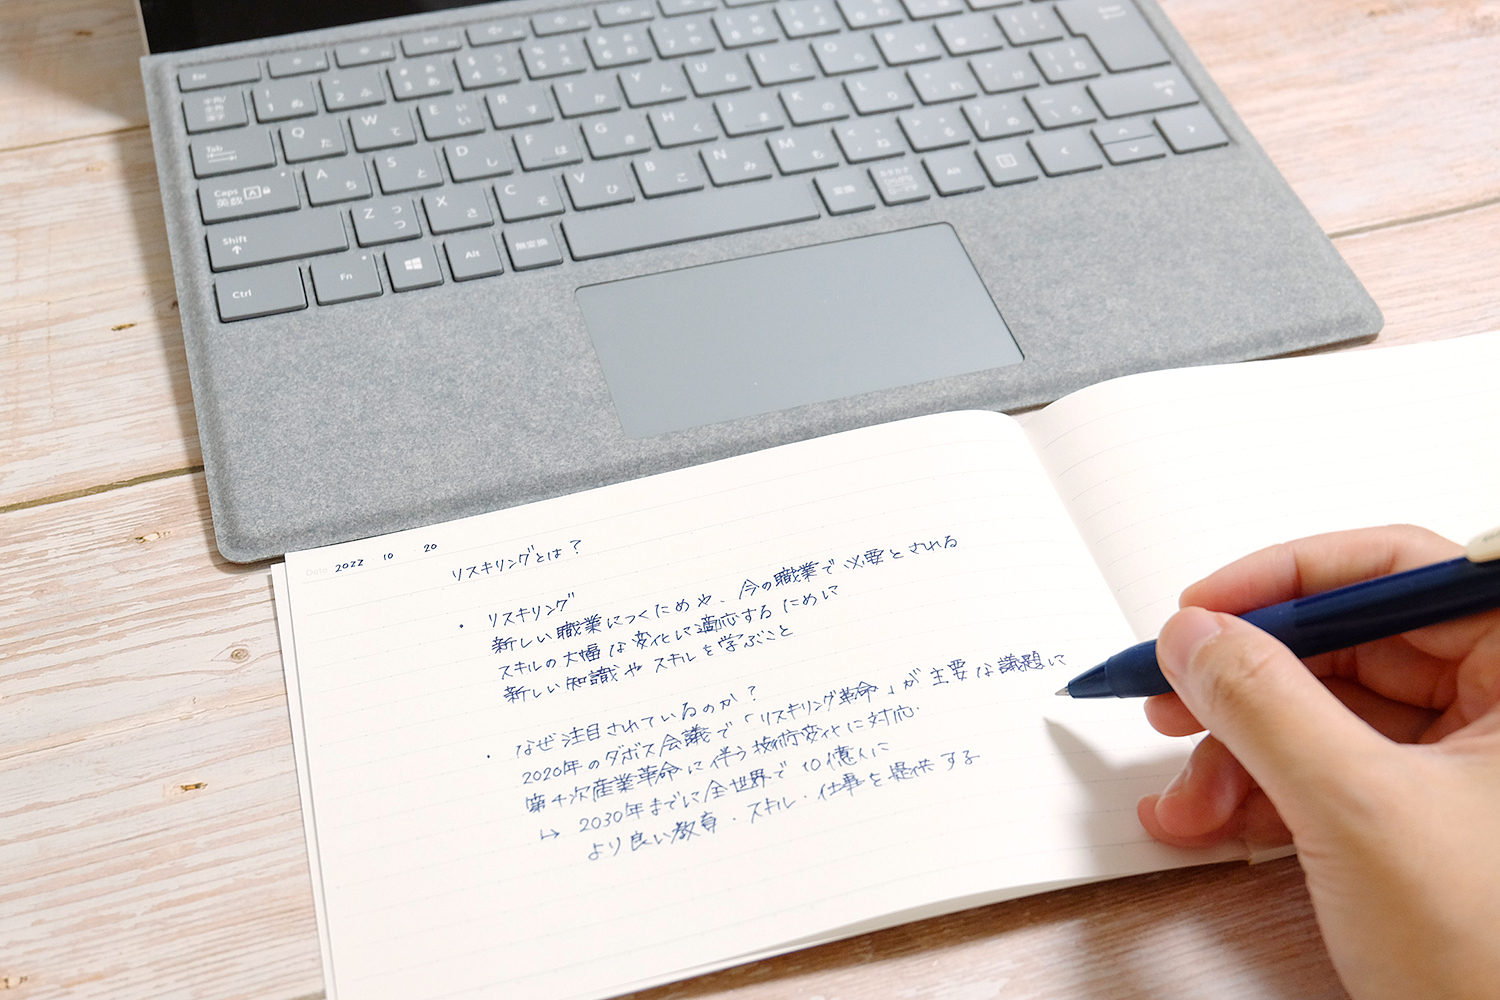 Esc
半角/
全角
漢字
! 1 ぬ
" 2 ふ
# 3 あ
$ 4 う
% 5 え
& 6 お
' 7 や
Tab
Q た
W て
E い
R す
T か
Y ん
U な
I に
O ら
P せ
Caps
英数
A ち
S と
D し
F は
G き
H く
J ま
K の
L り
Shift
Z つ
X さ
C そ
V ひ
B こ
N み
M も
Ctrl
Fn
Alt
無変換
変換
カタカナ
ひらがな
ローマ字
Alt
Date 2022 10 20
リスキリングとは?
・ リスキリング
新しい職業につくためや、今の職業で必要とされる
スキルの大幅な変化に適応するために
新しい知識やスキルを学ぶこと
・ なぜ注目されているのか?
2020年のダボス会議で「リスキリング革命」が主要な議題に
第4次産業革命に伴う技術変化に対応.
↳ 2030年までに全世界で10億人に
より良い教育・スキル・仕事を提供する